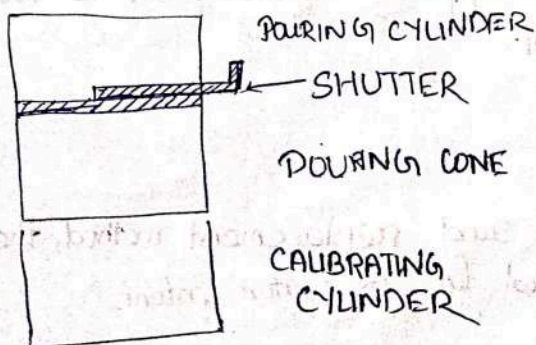 POURING CYLINDER
SHUTTER
CONE
CALIBRATING
CYLINDER